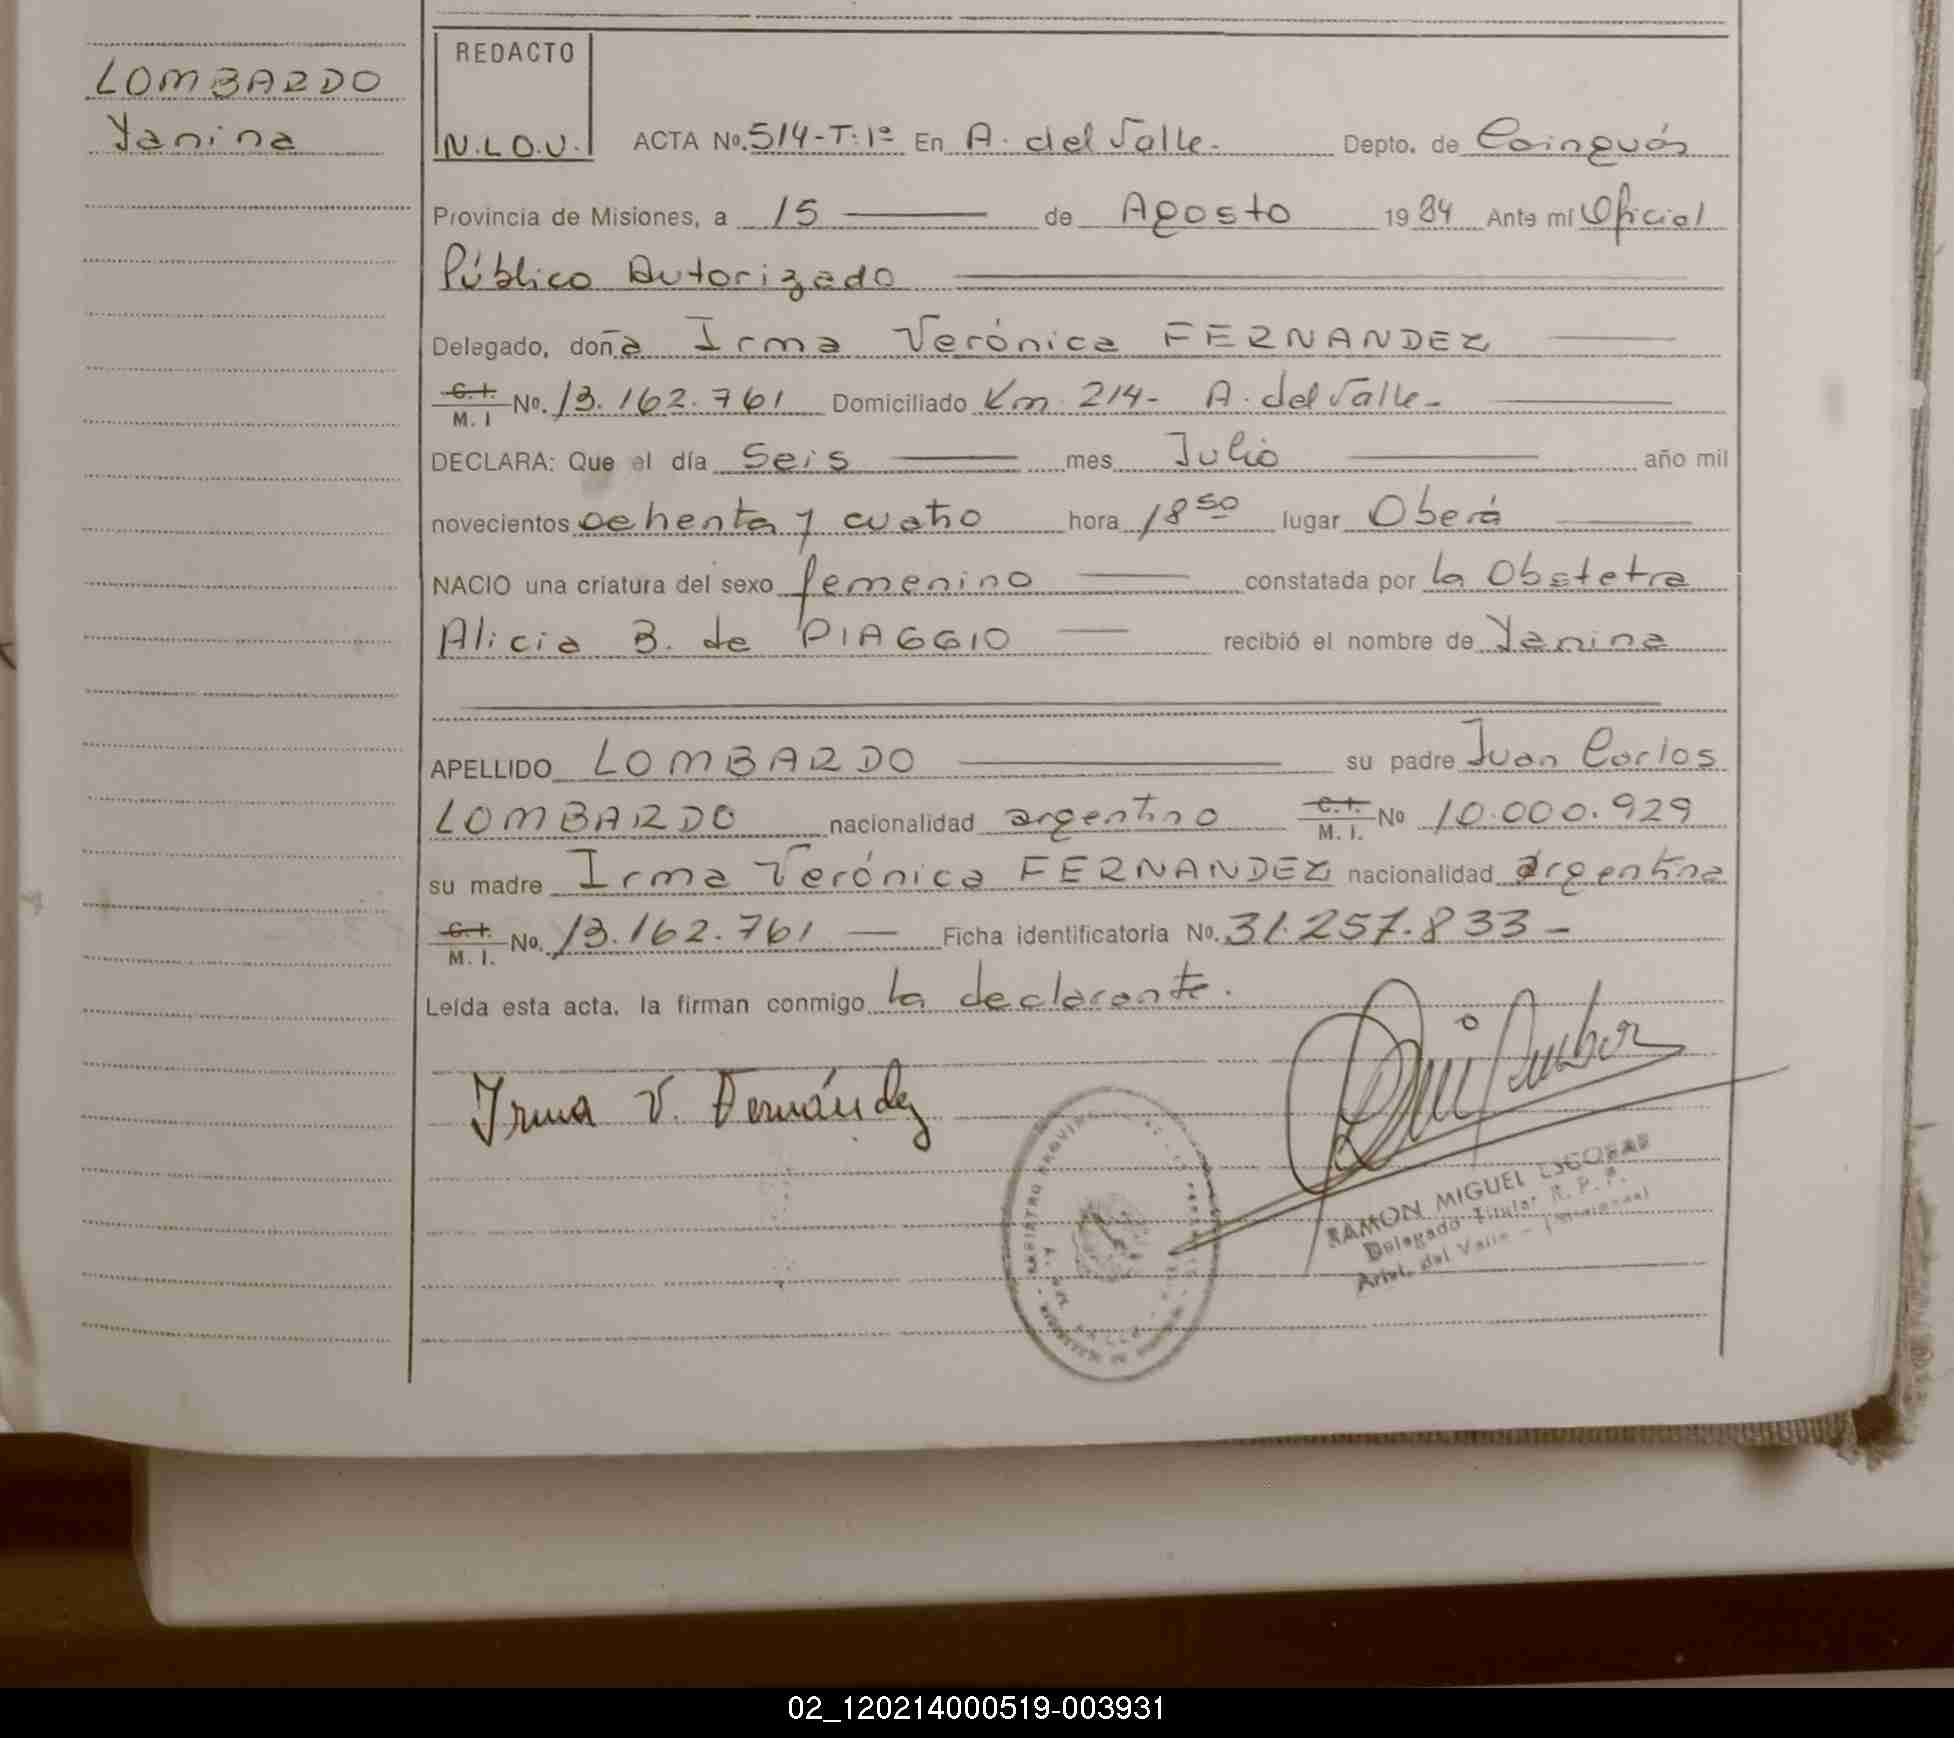 LOMBARDO
Yanina
REDACTO
N.L.O.V.
ACTA No. 514-T:1º En A. del Valle. Depto. de Cainguás
Provincia de Misiones, a 15 de Agosto 1984 Ante mí Oficial
Público Autorizado
Delegado, doña Irma Verónica FERNANDEZ
C.I. M. I No. 13.162.761 Domiciliado Km 214- A. del Valle-
DECLARA: Que el día Seis mes Julio año mil
novecientos ochenta y cuatro hora 18 50 lugar Oberá
NACIO una criatura del sexo femenino constatada por la Obstetra
Alicia B. de PIAGGIO recibió el nombre de Yanina
APELLIDO LOMBARDO su padre Juan Carlos
LOMBARDO nacionalidad argentino C.I. M. I. No 10.000.929
su madre Irma Verónica FERNANDEZ nacionalidad argentina
C.I. M. I. No. 13.162.761 Ficha identificatoria No. 31.257.833-
Leída esta acta, la firman conmigo la declarante.
Irma V. Fernández
RAMON MIGUEL ESCOBAR
Delegado Titular R. P. P.
Arist. del Valle - (Misiones)
02_120214000519-003931